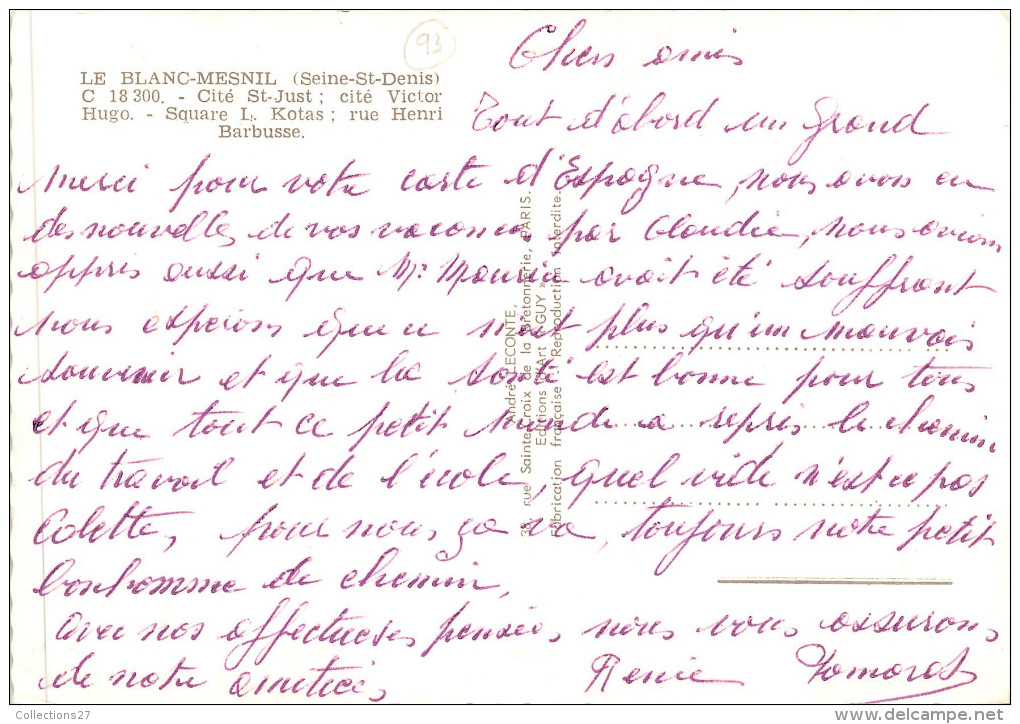 93
LE BLANC-MESNIL (Seine-St-Denis)
C 18 300. - Cité St-Just ; cité Victor
Hugo. - Square L. Kotas ; rue Henri
Barbusse.
Chers amis
Tout d'abord un grand
Merci pour votre carte d'Espagne, nous avons eu
des nouvelles de vos vacances par Claudie, nous avions
appris aussi que Mr Maurice avait été souffrant
nous espérons que ce n'est plus qu'un mauvais
souvenir et que la santé est bonne pour tous
et que tout ce petit monde a repris le chemin
du travail et de l'école, quel vide n'est ce pas
Colette, pour nous, ça va, toujours notre petit
bonhomme de chemin,
avec nos affectueuses pensées, nous vous assurons
de notre amitiées,
Renée
André LECONTE,
38, rue Sainte-Croix de la Bretonnerie, PARIS.
Editions d'Art « GUY »
Fabrication française - Reproduction interdite.
Collections27
www.delcampe.net